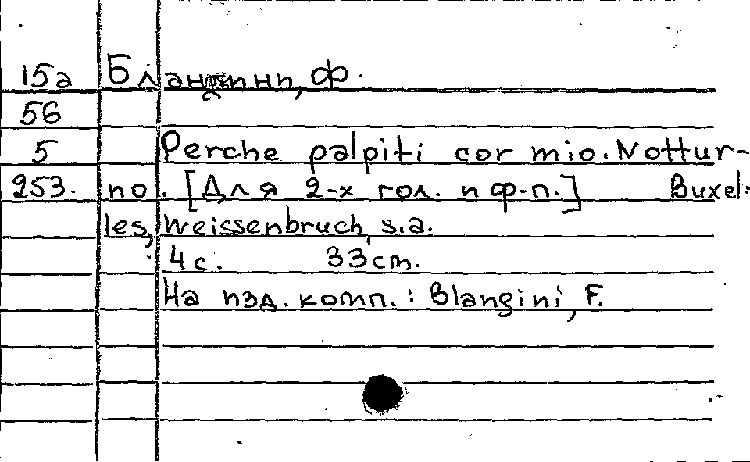 15а Бланжини, Ф.
56
5 Perche palpiti cor mio. Nottur-
253. no. [Для 2-х гол. и ф-п.] Buxel-
les, Weissenbruch, s.a.
4 с. 33 cm.
На изд. комп.: Blangini, F.